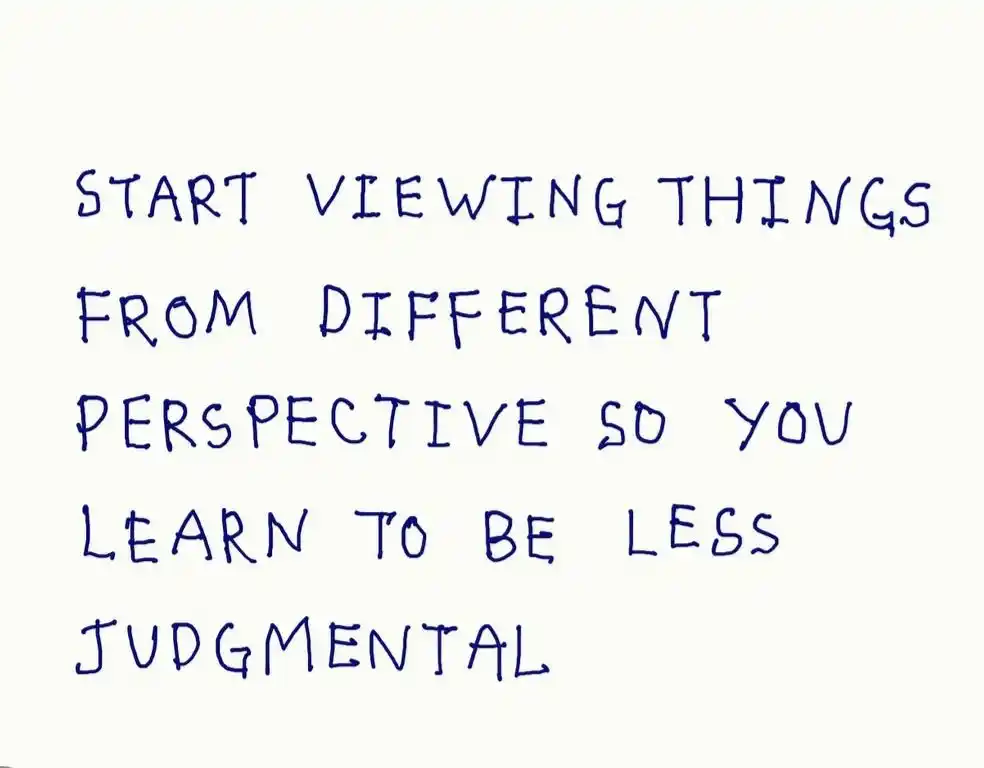 START VIEWING THINGS
FROM DIFFERENT
PERSPECTIVE SO YOU
LEARN TO BE LESS
JUDGMENTAL